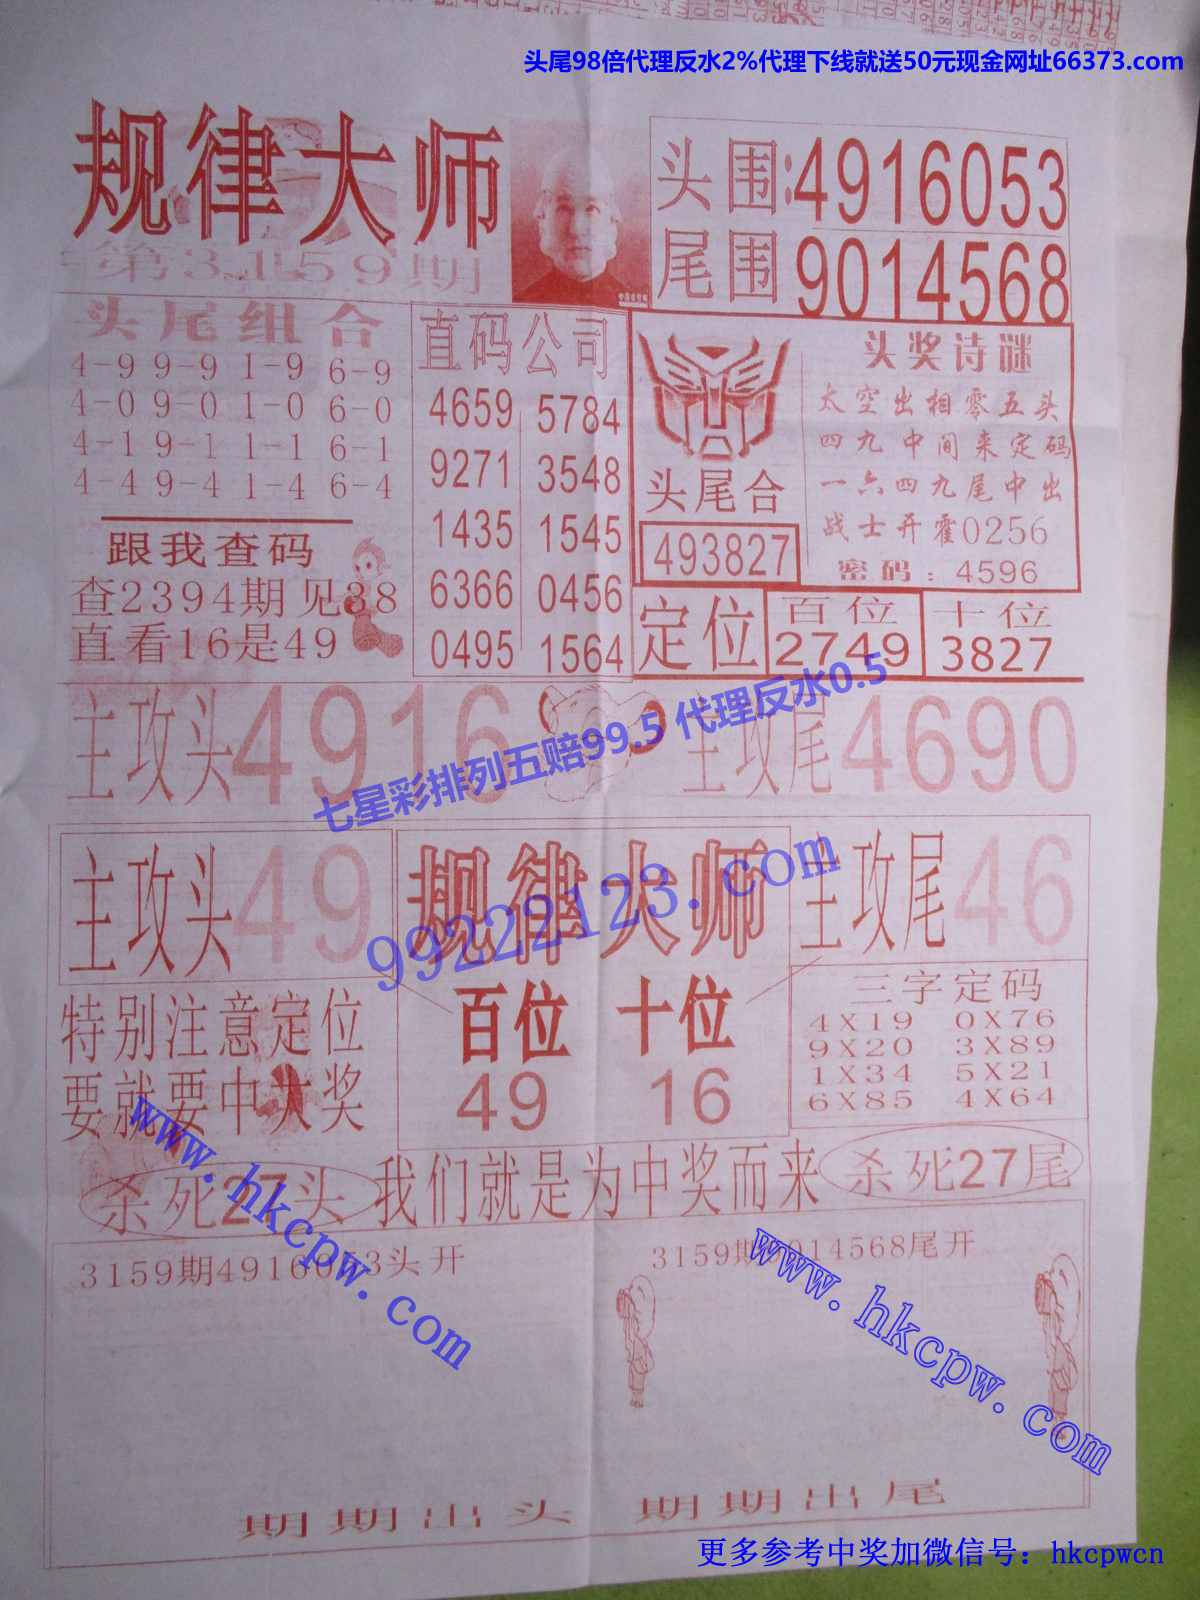 头尾98倍代理反水2%代理下线就送50元现金网址66373.com
规律大师
第3159期
头围:4916053
尾围9014568
头尾组合
4-9 9-9 1-9 6-9
4-0 9-0 1-0 6-0
4-1 9-1 1-1 6-1
4-4 9-4 1-4 6-4
跟我查码
查2394期见38
直看16是49
直码公司
4659 5784
9271 3548
1435 1545
6366 0456
0495 1564
头尾合
493827
头奖诗谜
太空出相零五头
四九中间来定码
一六四九尾中出
战士开霍0256
密码:4596
定位
百位
2749
十位
3827
主攻头4916
主攻尾4690
七星彩排列五赔99.5 代理反水0.5
主攻头49
规律大师
主攻尾46
99222123.com
特别注意定位
要就要中大奖
百位 十位
49 16
三字定码
4X19 0X76
9X20 3X89
1X34 5X21
6X85 4X64
www.hkcpw.com
杀死27头
我们就是为中奖而来
杀死27尾
3159期4916053头开
3159期9014568尾开
www.hkcpw.com
期期出头 期期出尾
更多参考中奖加微信号：hkcpwcn